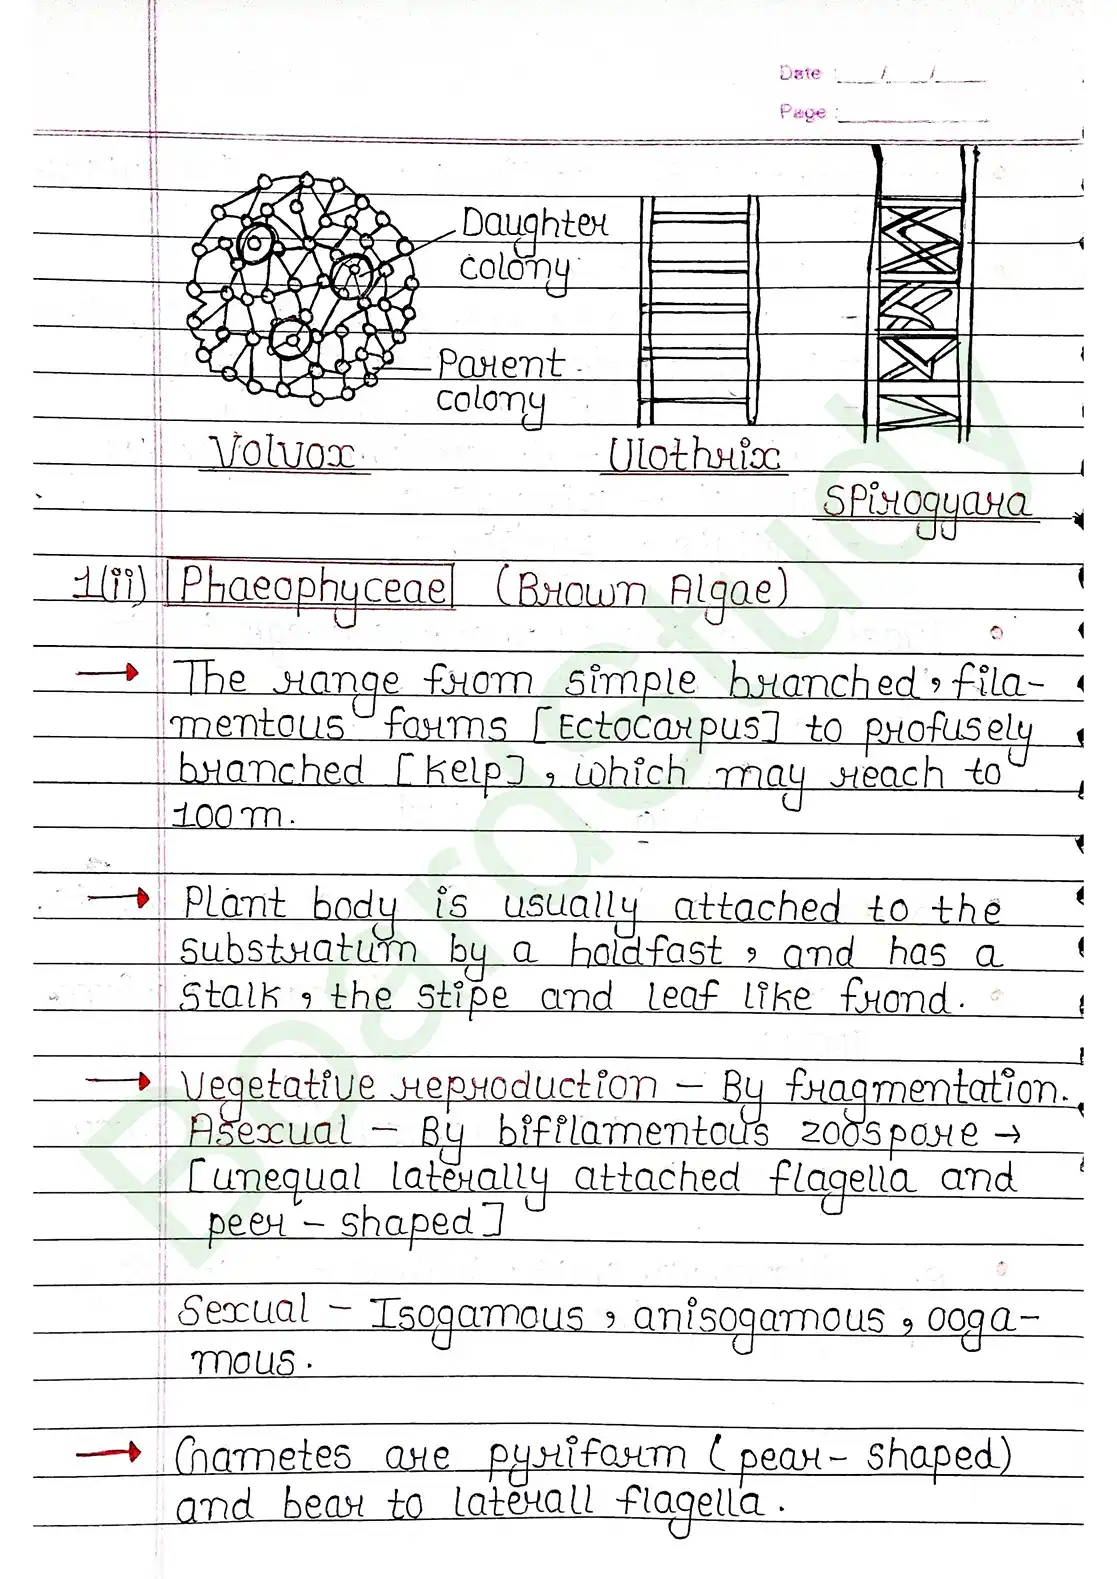 Date : __/__/__
Page : ________
Daughter
colony
Parent
colony
Volvox
Ulothrix
SPirogyara
1(ii) Phaeophyceae (Brown Algae)
→ The range from simple branched, fila-
mentous forms [Ectocarpus] to profusely
branched [Kelp], which may reach to
100m.
→ Plant body is usually attached to the
substratum by a holdfast, and has a
stalk, the stipe and leaf like frond.
→ Vegetative reproduction - By fragmentation.
Asexual - By bifilamentous zoospore →
[unequal laterally attached flagella and
peer - shaped]
Sexual - Isogamous, anisogamous, ooga-
mous.
→ Gametes are pyriform (pear- shaped)
and bear to laterall flagella.
BoardStudy